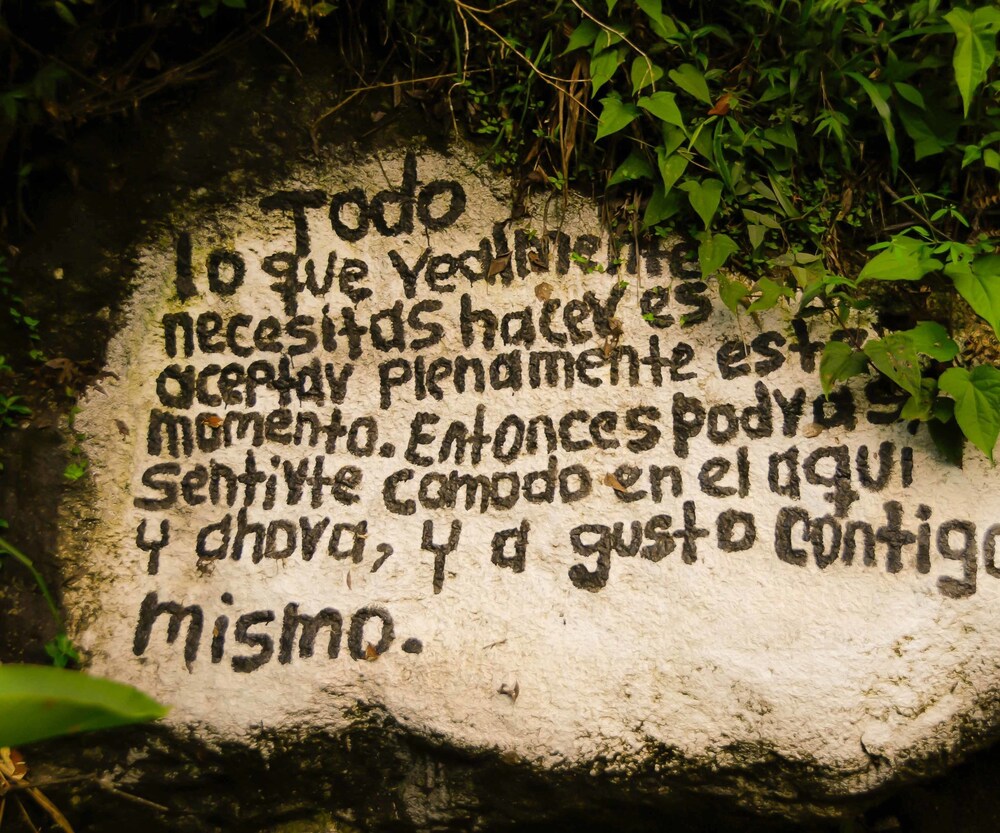 Todo
lo que realmente
necesitas hacer es
aceptar plenamente este
momento. Entonces podras
sentirte comodo en el aqui
y ahora, y a gusto contigo
mismo.